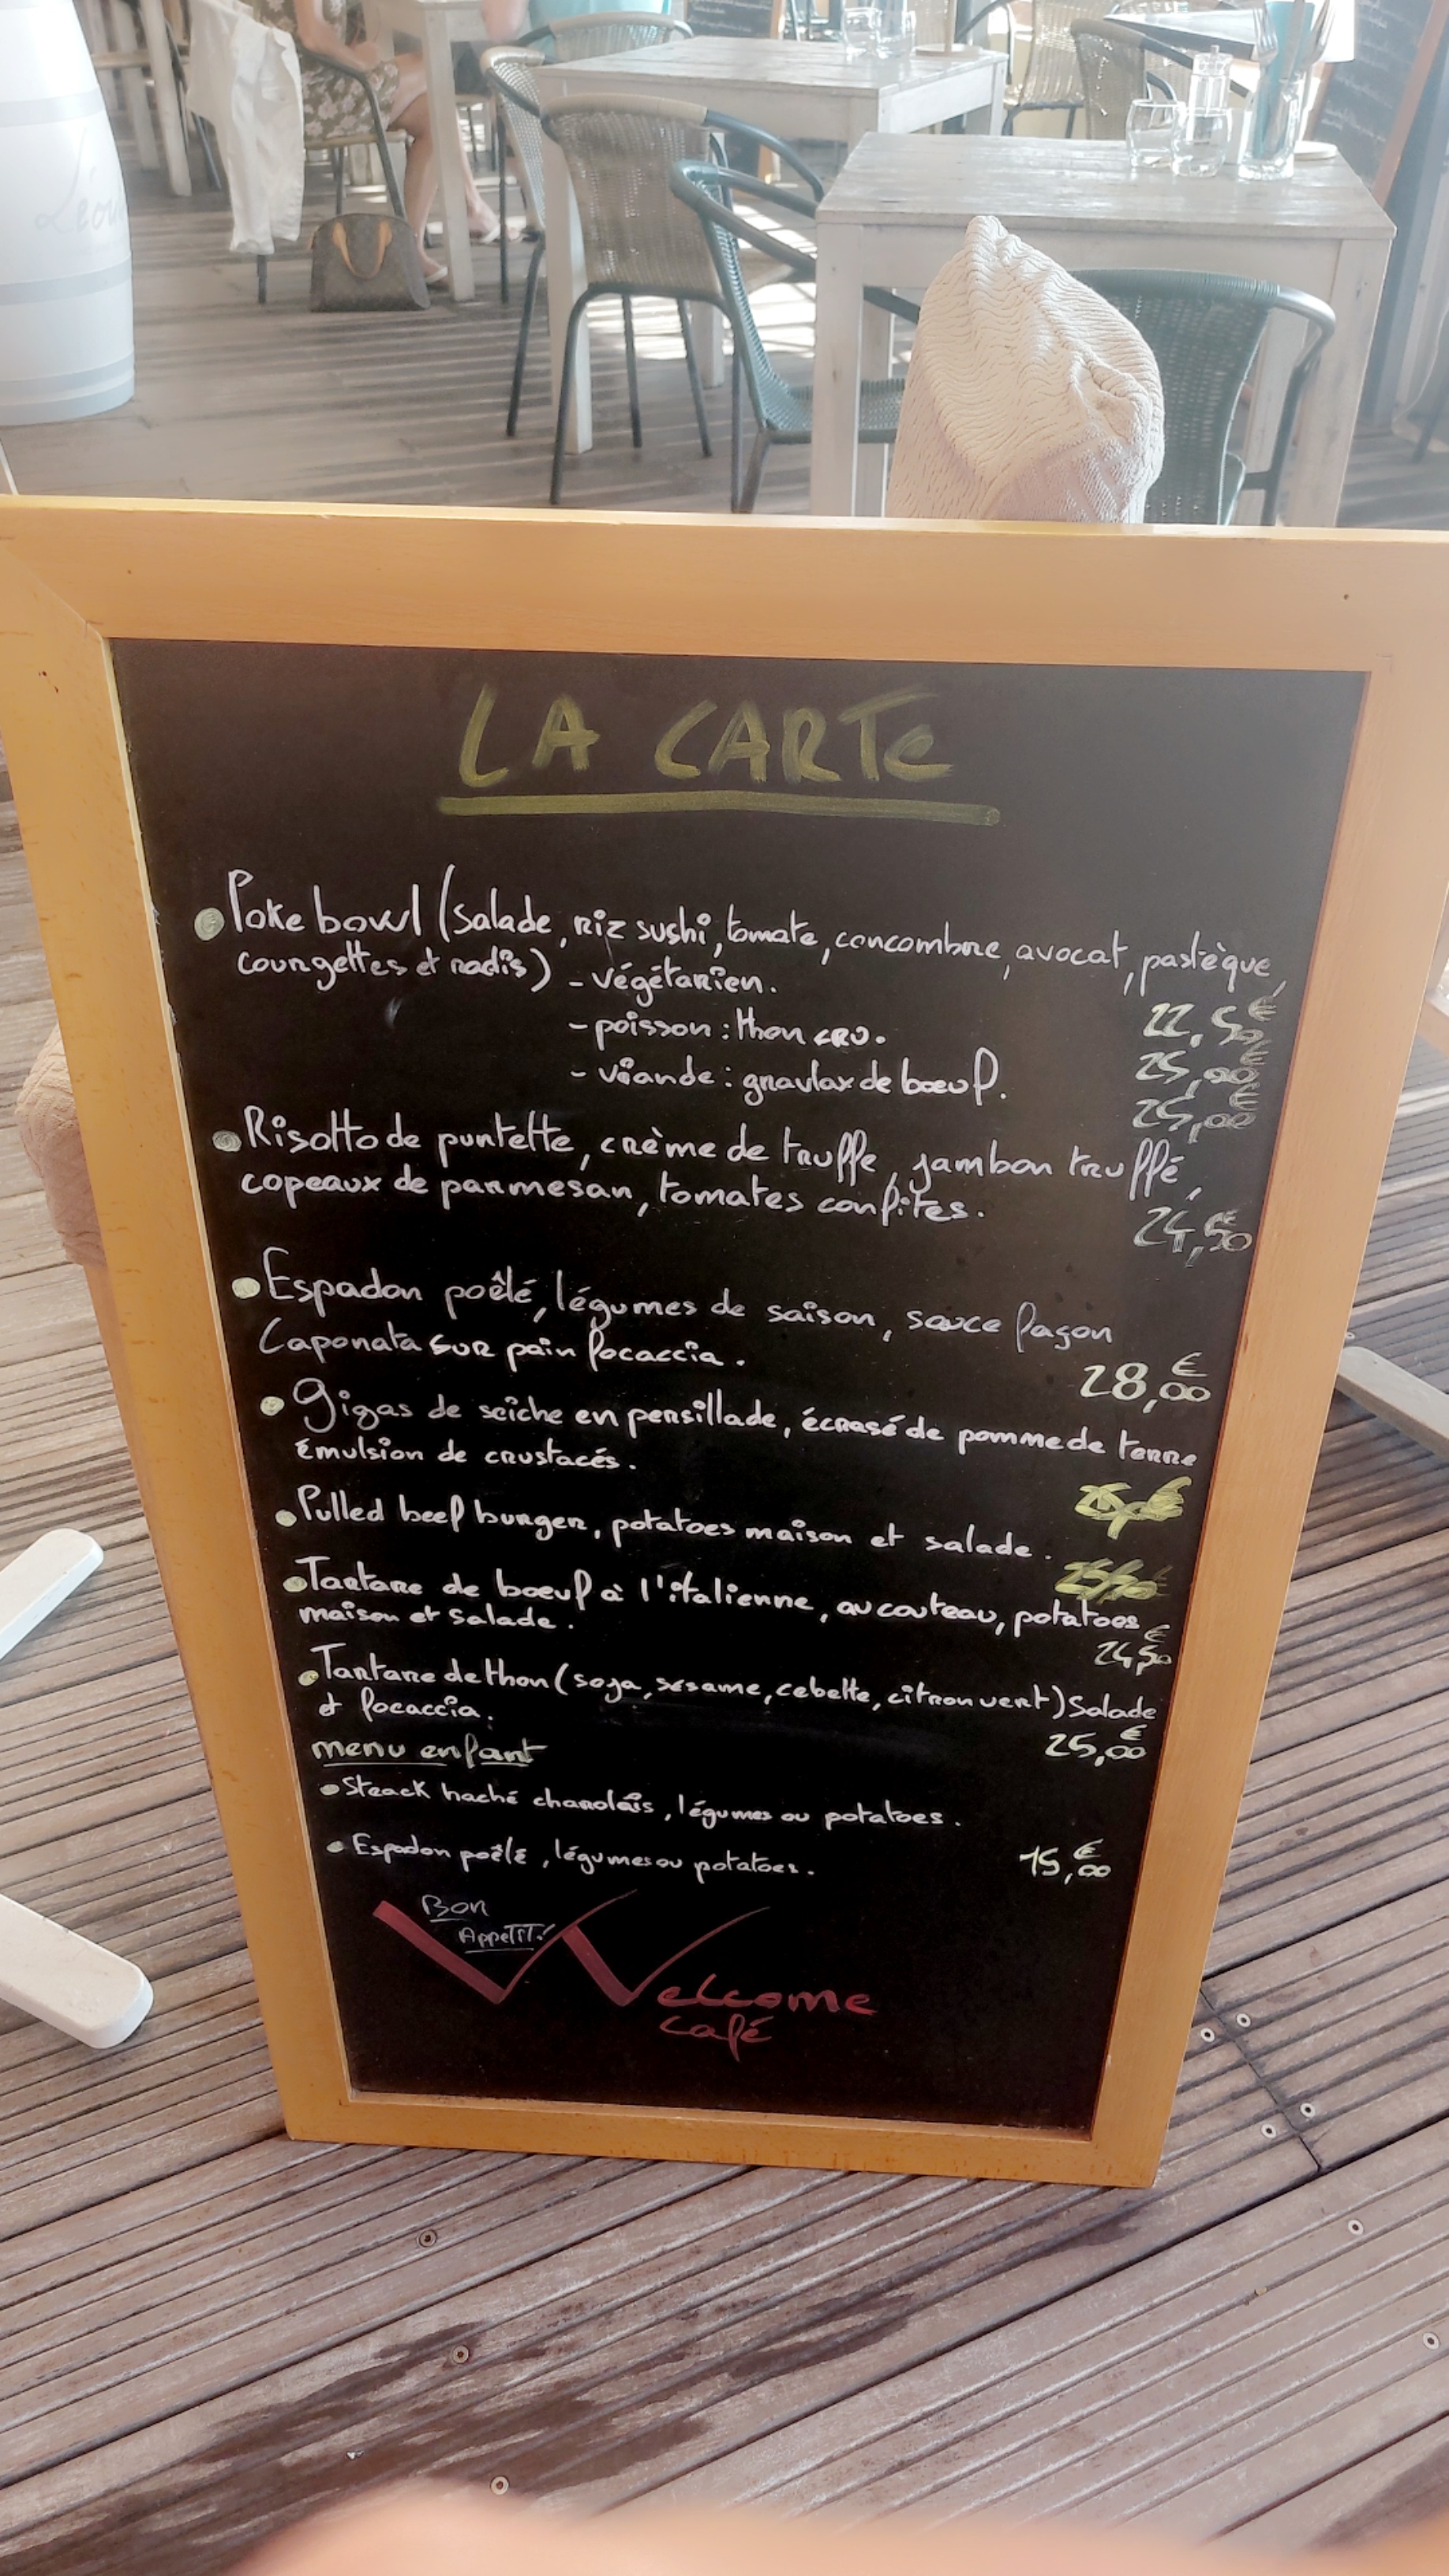 LA CARTe
Poke bowl (Salade, riz sushi, tomate, concombre, avocat, pastèque,
courgettes et radis) - végétarien.
22,50€
- poisson : thon cru.
25,00€
- viande : gravlax de bœuf.
25,00€
Risotto de puntette, crème de truffe, jambon truffé,
copeaux de parmesan, tomates confites.
24,50€
Espadon poêlé, légumes de saison, sauce façon
Caponata sur pain focaccia.
28,00€
Gigas de seiche en persillade, écrasé de pomme de terre
émulsion de crustacés.
Pulled beef burger, potatoes maison et salade.
Tartare de bœuf à l'italienne, au couteau, potatoes
maison et salade.
24,50€
Tartare de thon (soja, sésame, cebette, citron vert) Salade
et focaccia.
25,00€
menu enfant
Steack haché charolais, légumes ou potatoes.
Espadon poêlé, légumes ou potatoes.
15,00€
Bon
Appetit!
Welcome
Café